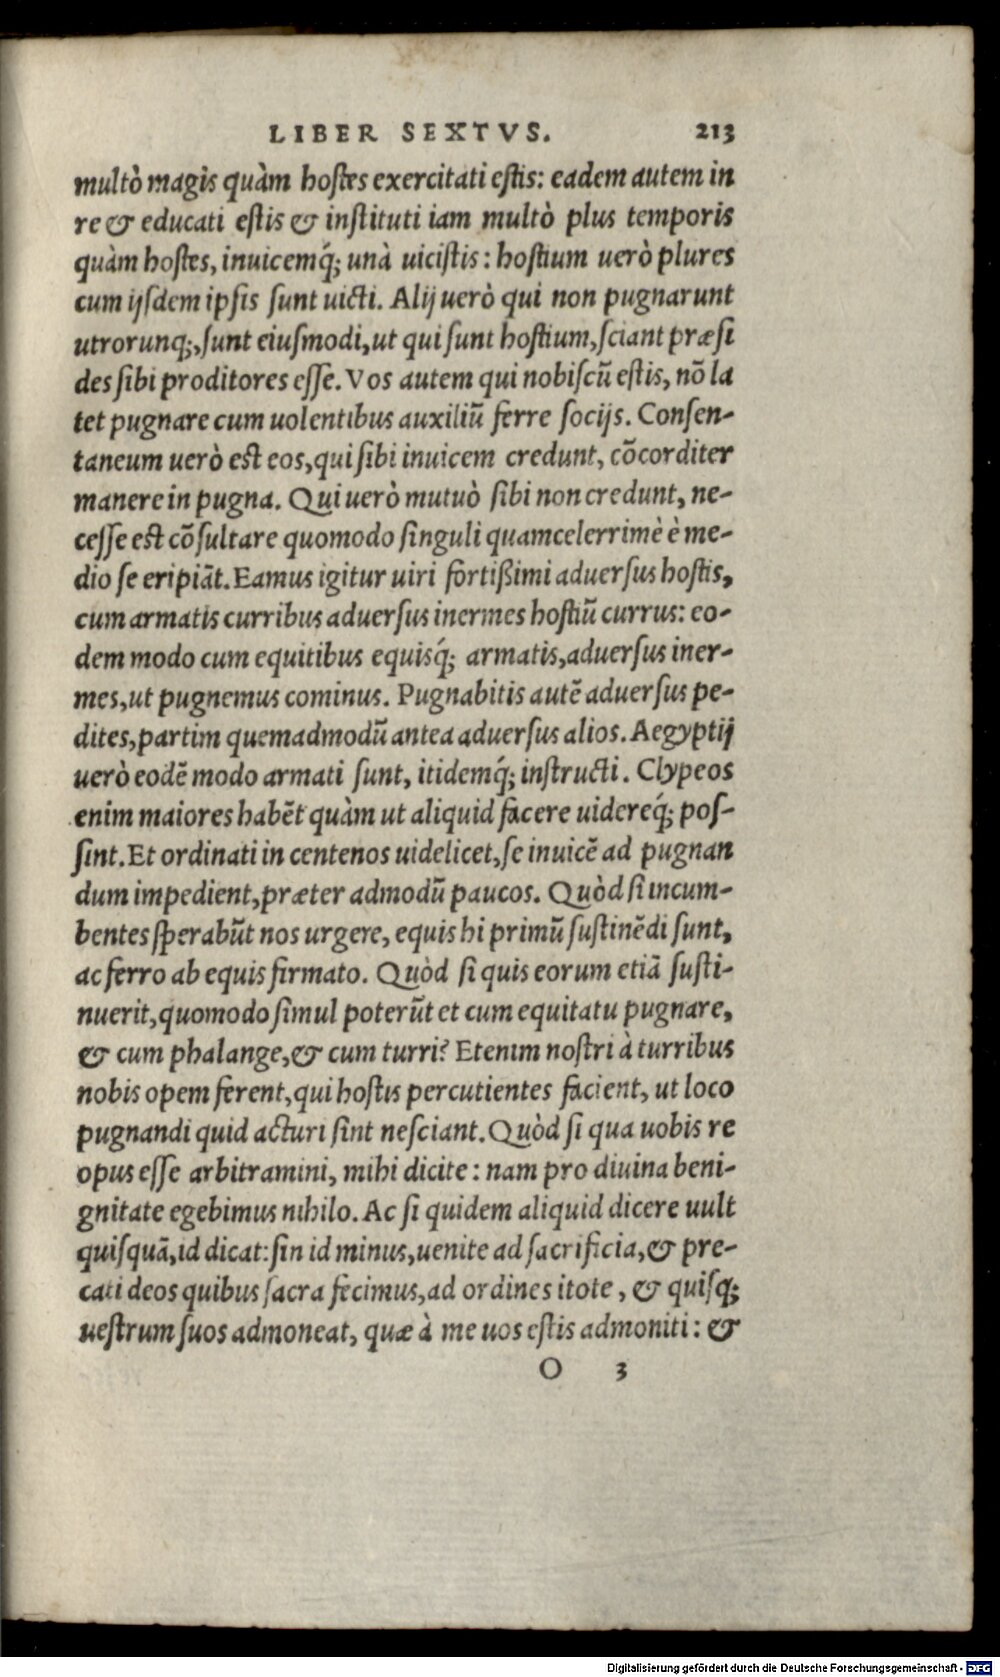 LIBER SEXTVS. 213
multò magis quàm hostes exercitati estis: eadem autem in
re & educati estis & instituti iam multò plus temporis
quàm hostes, inuicemq́; unà uicistis: hostium uerò plures
cum ijsdem ipsis sunt uicti. Alij uerò qui non pugnarunt
utrorunq;, sunt eiusmodi, ut qui sunt hostium, sciant præsi
des sibi proditores esse. Vos autem qui nobiscũ estis, nõ la
tet pugnare cum uolentibus auxiliũ ferre socijs. Consen-
taneum uerò est eos, qui sibi inuicem credunt, cõcorditer
manere in pugna. Qui uerò mutuò sibi non credunt, ne-
cesse est cõsultare quomodo singuli quamcelerrimè è me-
dio se eripiãt. Eamus igitur uiri fortißimi aduersus hostis,
cum armatis curribus aduersus inermes hostiũ currus: eo-
dem modo cum equitibus equisq́; armatis, aduersus iner-
mes, ut pugnemus cominus. Pugnabitis autẽ aduersus pe-
dites, partim quemadmodũ antea aduersus alios. Aegyptij
uerò eodẽ modo armati sunt, itidemq́; instructi. Clypeos
enim maiores habẽt quàm ut aliquid facere uidereq́; pos-
sint. Et ordinati in centenos uidelicet, se inuicẽ ad pugnan
dum impedient, præter admodũ paucos. Quòd si incum-
bentes sperabũt nos urgere, equis hi primũ sustinẽdi sunt,
ac ferro ab equis firmato. Quòd si quis eorum etiã susti-
nuerit, quomodo simul poterũt et cum equitatu pugnare,
& cum phalange, & cum turri? Etenim nostri à turribus
nobis opem ferent, qui hostis percutientes facient, ut loco
pugnandi quid acturi sint nesciant. Quòd si qua uobis re
opus esse arbitramini, mihi dicite: nam pro diuina beni-
gnitate egebimus nihilo. Ac si quidem aliquid dicere uult
quisquã, id dicat: sin id minus, uenite ad sacrificia, & pre-
cati deos quibus sacra fecimus, ad ordines itote, & quisq;
uestrum suos admoneat, quæ à me uos estis admoniti: &
O 3
Digitalisierung gefördert durch die Deutsche Forschungsgemeinschaft - DFG